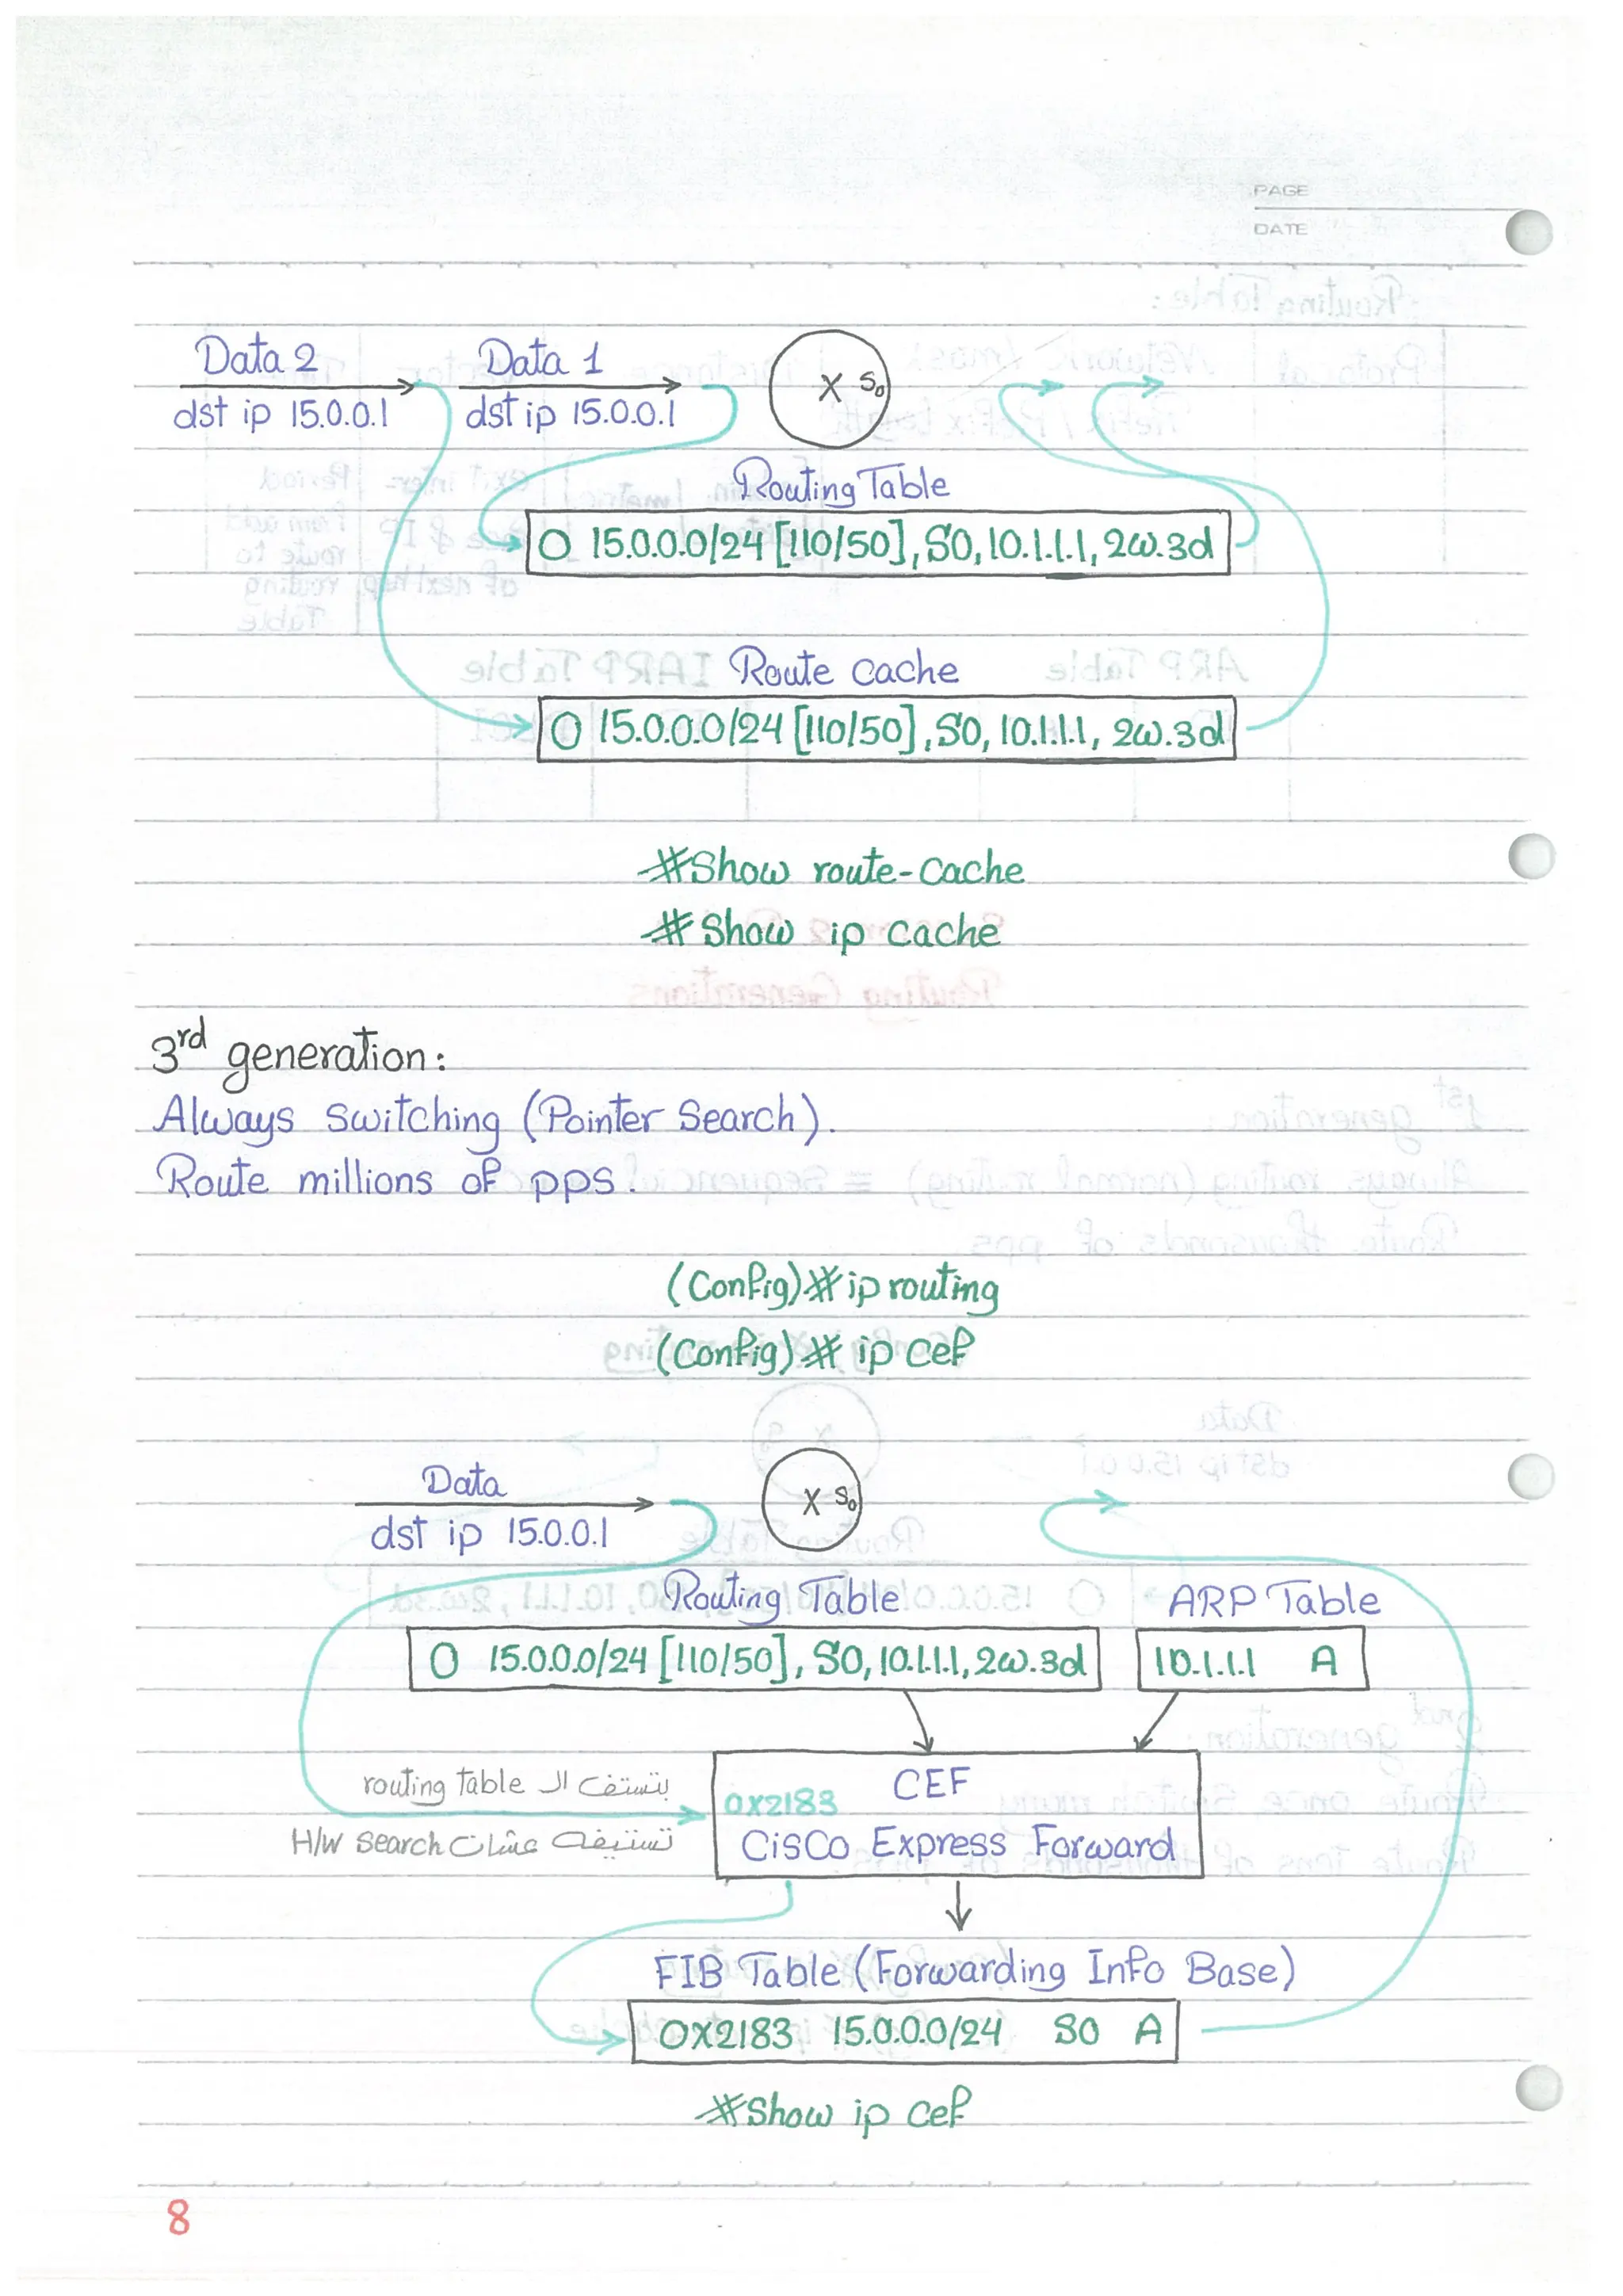 PAGE
DATE
Data 2 Data 1
X S0
dst ip 15.0.0.1 dst ip 15.0.0.1
Routing Table
O 15.0.0.0/24 [110/50], S0, 10.1.1.1, 2w.3d
Route Cache
O 15.0.0.0/24 [110/50], S0, 10.1.1.1, 2w.3d
#Show route-cache
#Show ip cache
3rd generation:
Always switching (Pointer Search).
Route millions of pps.
(Config)# ip routing
(Config)# ip cef
Data
X S0
dst ip 15.0.0.1
Routing Table ARP Table
O 15.0.0.0/24 [110/50], S0, 10.1.1.1, 2w.3d 10.1.1.1 A
routing table ال
CEF
0x2183
H/W search عشان
Cisco Express Forward
FIB Table (Forwarding Info Base)
0x2183 15.0.0.0/24 S0 A
#Show ip cef
8